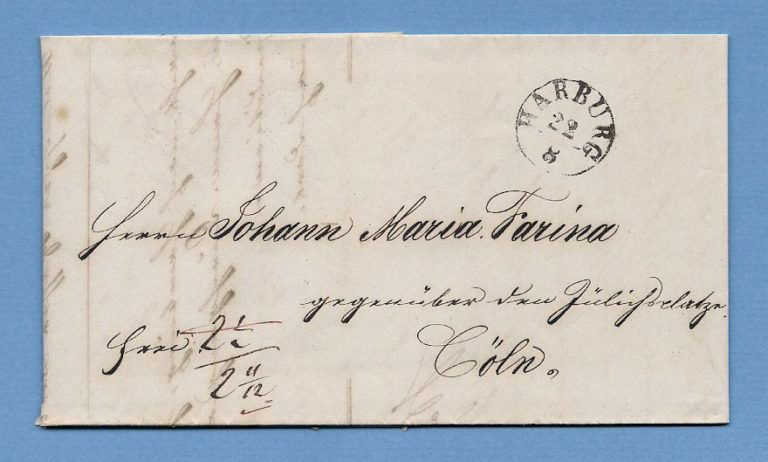 HARBURG
22
8
Herrn Johann Maria Farina
gegenüber den Jülichsplatze.
Cöln.
frei 2 1/2
2 11/12